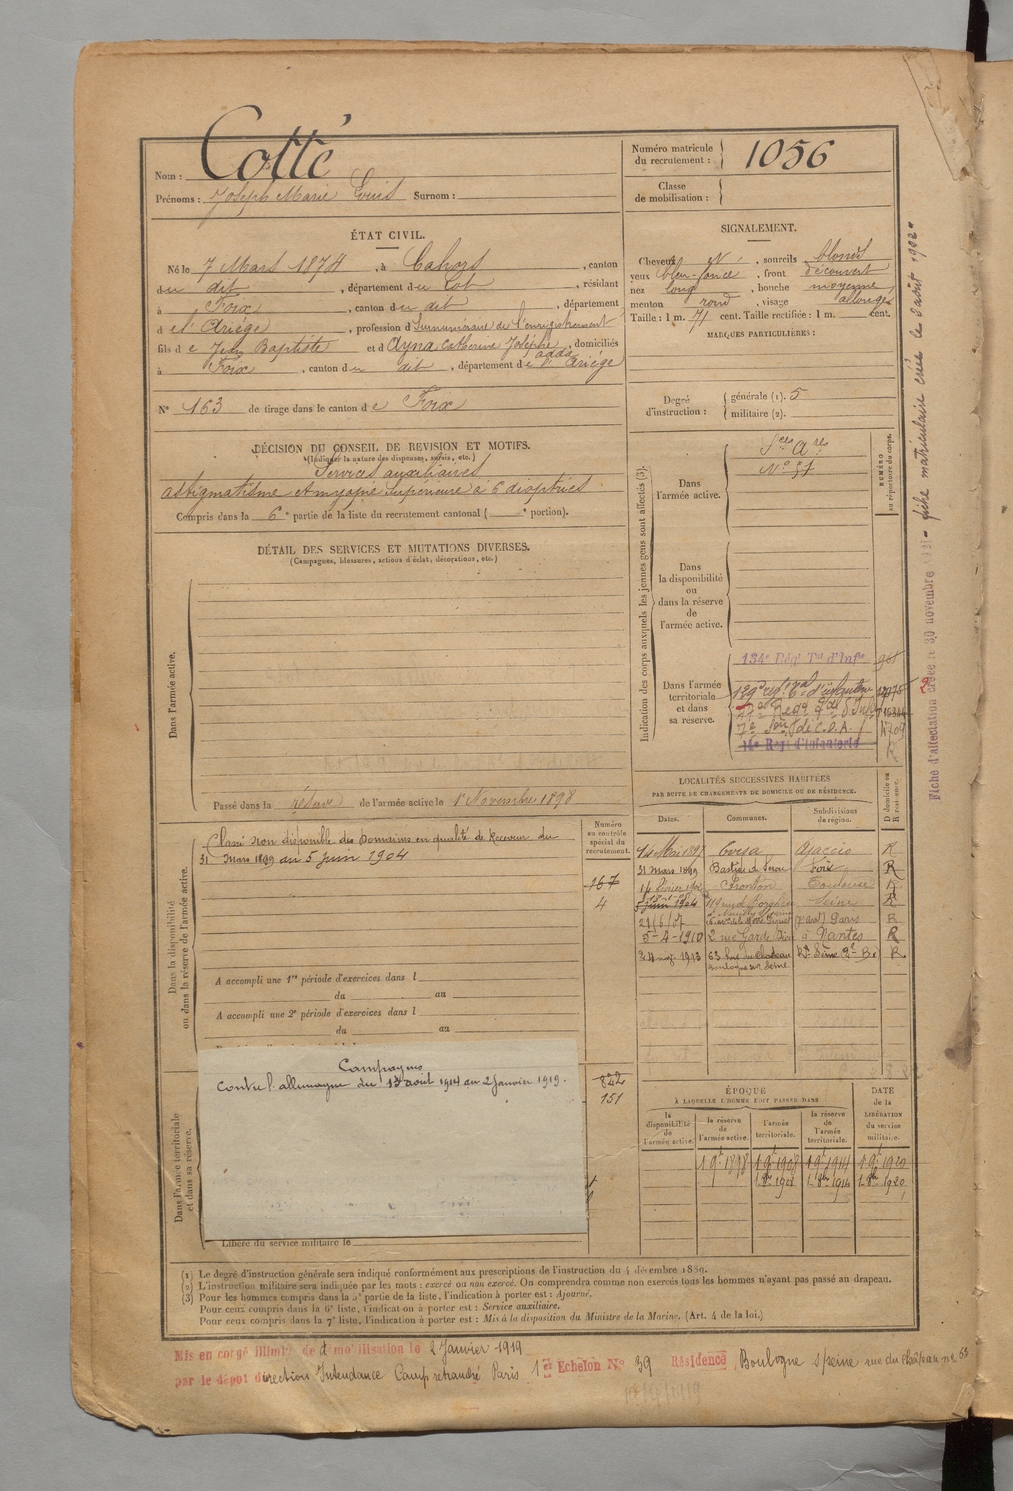 Nom : Cotté
Prénoms : Joseph Marie Louis Surnom :
Numéro matricule du recrutement : 1056
Classe de mobilisation :
ÉTAT CIVIL.
Né le 7 Mars 1874, à Cahors, canton
du dit, département du Lot, résidant
à Foix, canton du dit, département
de l'Ariége, profession d Surnuméraire de l'enregistrement
fils de Jean Baptiste et d Ayna Catherine Josèphe, domiciliés
à Foix, canton du dit, département de l'Ariége
N° 163 de tirage dans le canton de Foix
SIGNALEMENT.
Cheveux et, sourcils blonds
yeux bleu-foncé, front découvert
nez long, bouche moyenne
menton rond, visage allongé
Taille : 1 m. 71 cent. Taille rectifiée : 1 m. cent.
MARQUES PARTICULIÈRES :
Degré d'instruction : générale (1). 5
militaire (2).
DÉCISION DU CONSEIL DE REVISION ET MOTIFS.
(Indiquer la nature des dispenses, sursis, etc.)
Services auxiliaires
astigmatisme et myopie supérieure à 6 dioptries
Compris dans la 6e partie de la liste du recrutement cantonal ( e portion).
DÉTAIL DES SERVICES ET MUTATIONS DIVERSES.
(Campagnes, blessures, actions d'éclat, décorations, etc.)
Dans l'armée active.
Passé dans la réserve de l'armée active le 1er Novembre 1898
Indication des corps auxquels les jeunes gens sont affectés (3).
NUMÉRO au répertoire du corps.
Dans l'armée active.
Dans la disponibilité ou dans la réserve de l'armée active.
Dans l'armée territoriale et dans sa réserve.
134e Régt Tal d'Infie
129e régt Tal d'infanterie
7e Son de C.O.A.
LOCALITÉS SUCCESSIVES HABITÉES
PAR SUITE DE CHANGEMENTS DE DOMICILE OU DE RÉSIDENCE.
D domicile ou R résidence.
Dates. Communes. Subdivisions de région.
14 Mai 1897 Corsa Ajaccio R
31 mars 1899 Bastide de Serou Foix R
14 février 1902 Fronton Toulouse R
5 juin 1904 Seine R
21/6/07 Paris R
5-4-1910 2 rue Garde Dieu à Nantes R
63 Rue du Chateau Boulogne sur Seine R
Numéro au contrôle spécial du recrutement.
167
4
822
151
Dans la disponibilité ou dans la réserve de l'armée active.
Classé non disponible des Domaines en qualité de Receveur du
31 Mars 1899 au 5 juin 1904
A accompli une 1re période d'exercices dans l
du au
A accompli une 2e période d'exercices dans l
du au
Dans l'armée territoriale et dans sa réserve.
Campagnes
Contre l'allemagne du 13 août 1914 au 2 Janvier 1919.
Libéré du service militaire le
ÉPOQUE
A LAQUELLE L'HOMME DOIT PASSER DANS
DATE de la LIBÉRATION du service militaire.
la disponibilité de l'armée active.
la réserve de l'armée active.
l'armée territoriale.
la réserve de l'armée territoriale.
(1) Le degré d'instruction générale sera indiqué conformément aux prescriptions de l'instruction du 4 décembre 1889.
(2) L'instruction militaire sera indiquée par les mots : exercé ou non exercé. On comprendra comme non exercés tous les hommes n'ayant pas passé au drapeau.
(3) Pour les hommes compris dans la 5e partie de la liste, l'indication à porter est : Ajourné.
Pour ceux compris dans la 6e liste, l'indication à porter est : Service auxiliaire.
Pour ceux compris dans la 7e liste, l'indication à porter est : Mis à la disposition du Ministre de la Marine. (Art. 4 de la loi.)
Mis en congé illimité de démobilisation le 2 Janvier 1919
par le dépôt direction Intendance Camp retranché Paris 1er Echelon N° 39 Résidence Boulogne s/seine rue du château no 63
Fiche d'affectation créée le 30 novembre
fiche matriculaire créée le